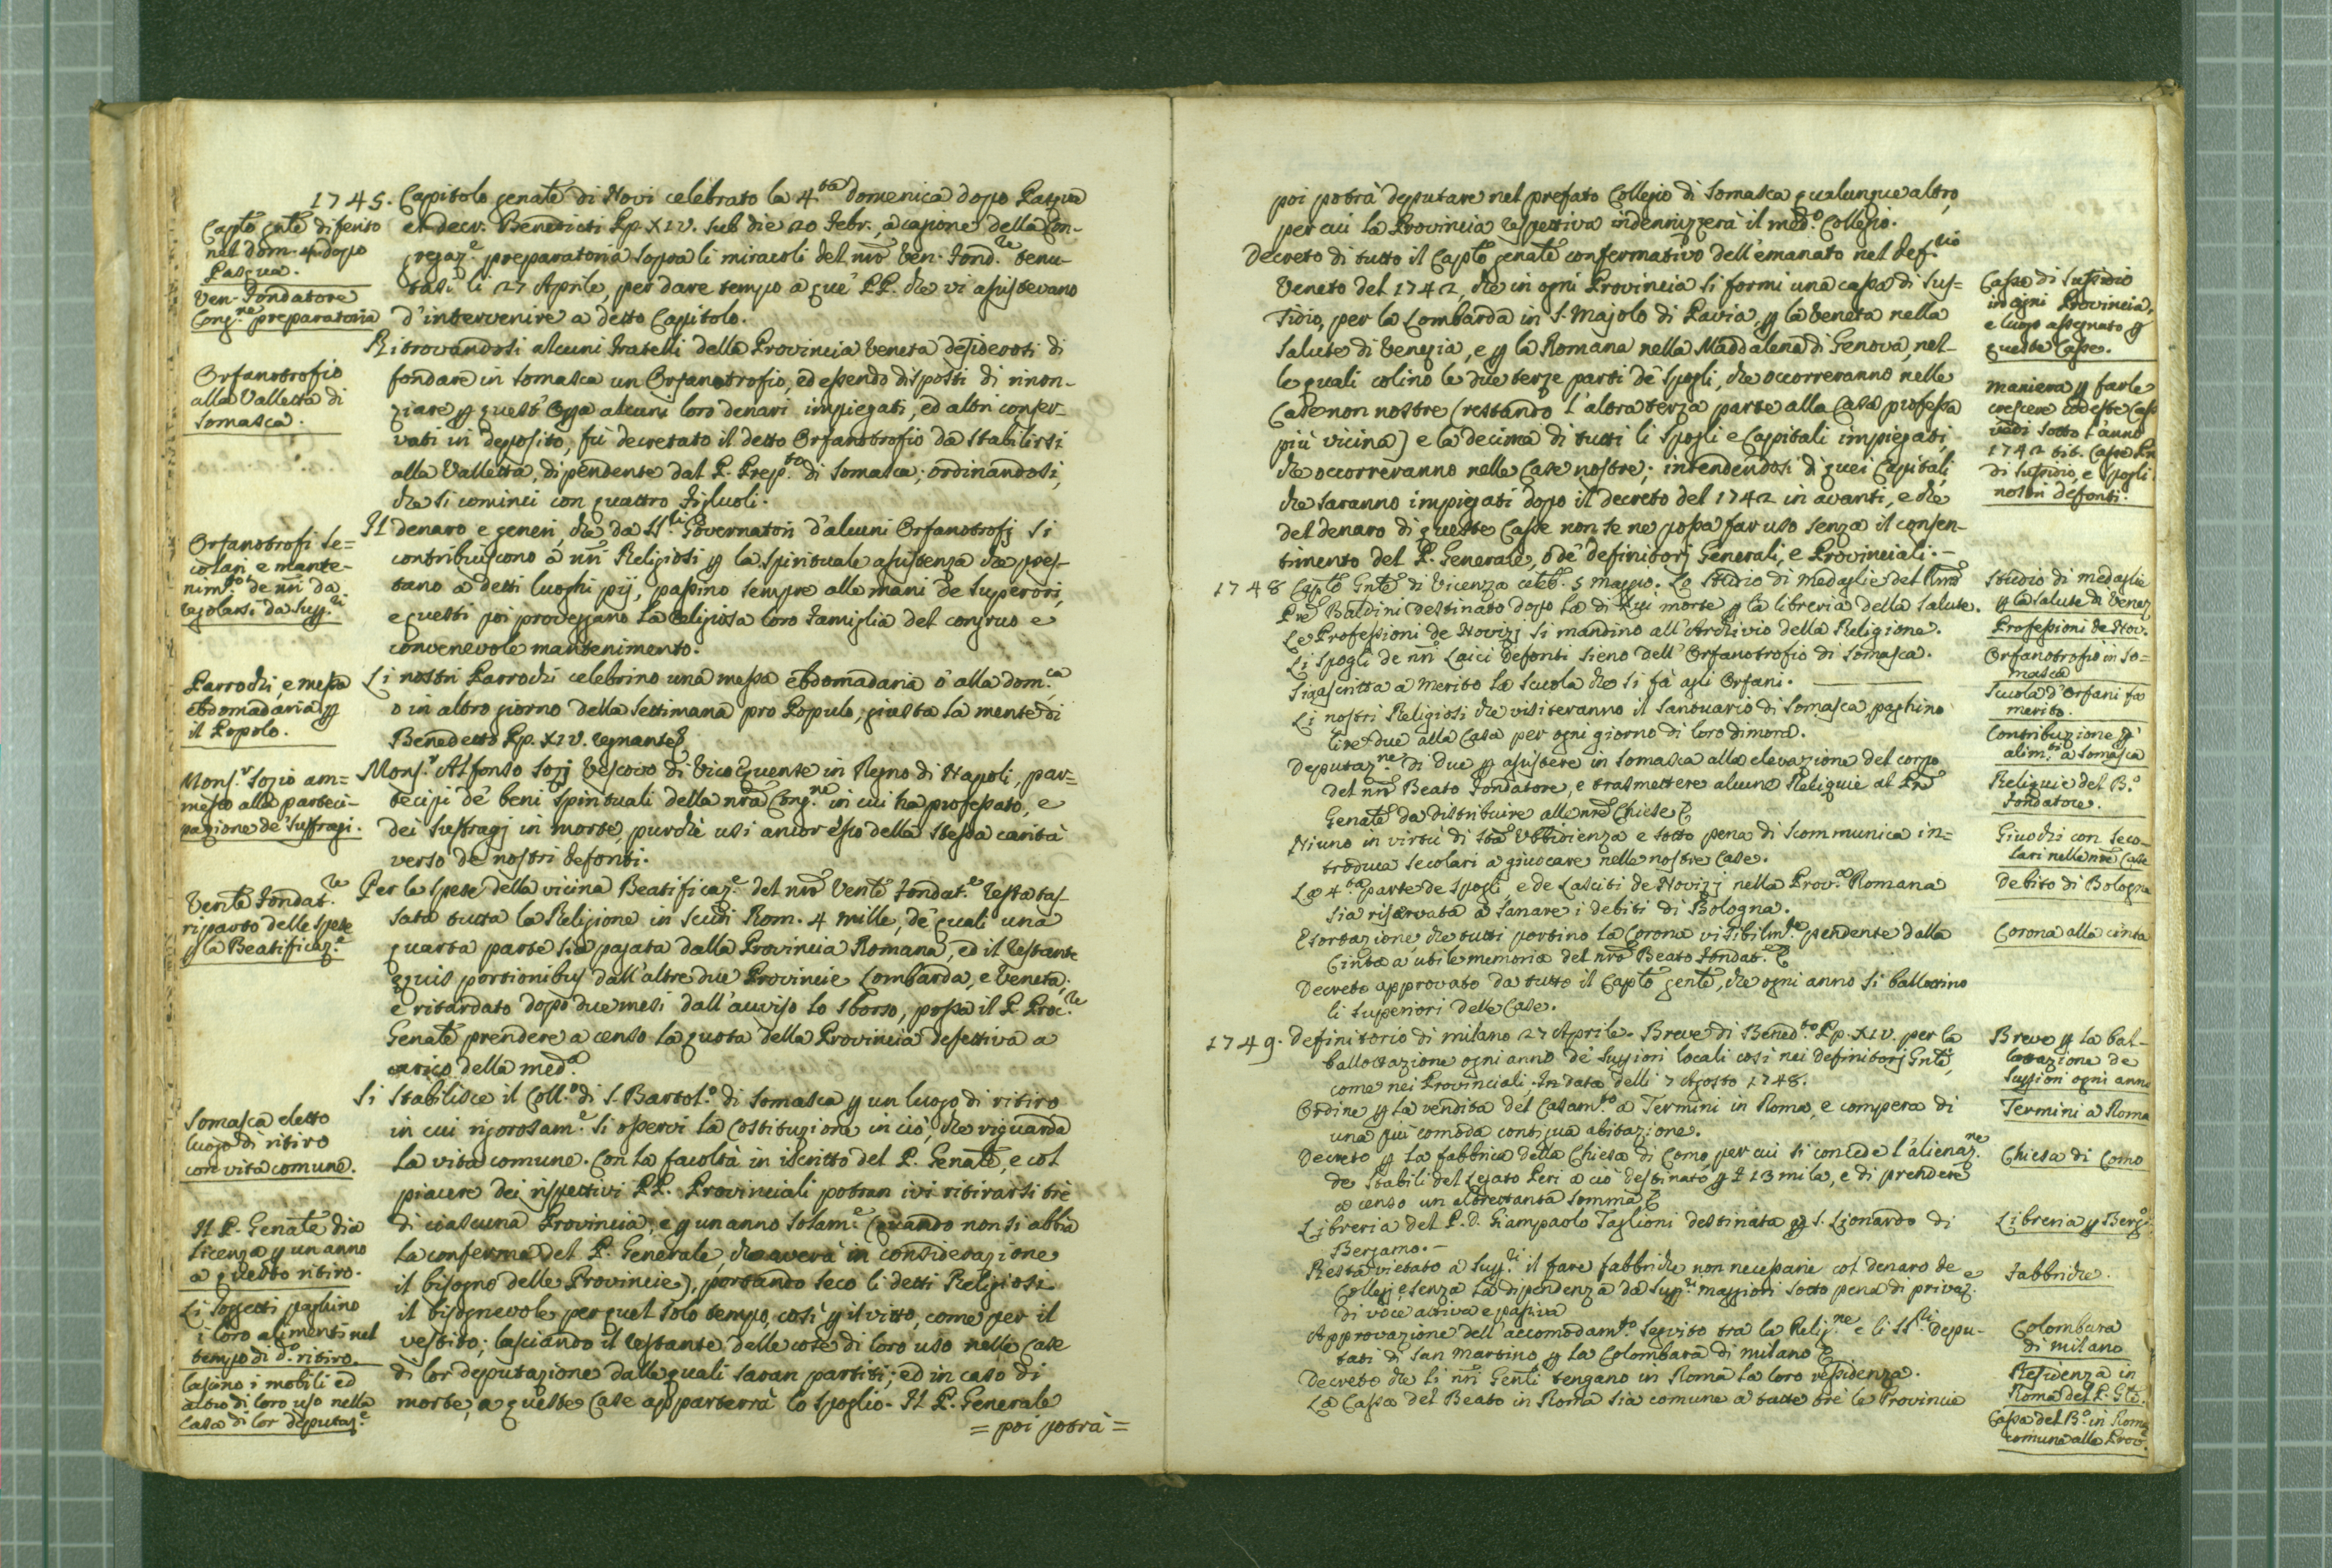 1745. Capitolo genãle di Novi celebrato la 4.ta domenica dopo Pasqua
ex decr. Benedicti Pp. XIV. sub die 20 Febr., a cagione della Con-
gregaz.e preparatoria sopra li miracoli del nrõ Ven. Fond.re tenu-
tasi li 27 Aprile, per dare tempo a què PP. che vi assistevano
d'intervenire a detto Capitolo.
Capto gnte differito
nel dom. 4. dopo
Pasqua.
Ven. Fondatore
Cong.ne preparatoria
Ritrovandosi alcuni Fratelli della Provincia Veneta desiderosi di
fondare in Somasca un Orfanotrofio, ed essendo disposti di rinon-
ziare p quest'Opa alcuni loro denari impiegati, ed altri conser-
vati in deposito, fù decretato il detto Orfanotrofio da stabilirsi
alla Valletta, dipendente dal P. Prep.to di Somasca; ordinandosi,
che si cominci con quattro Figliuoli.
Orfanotrofio
alla Valletta di
Somasca.
Il denaro e generi, che da SS.ri Governatori d'alcuni Orfanotrofj si
contribuiscono a nrĩ Religiosi p la spirituale assistenza che pres-
tano a detti luoghi pij, passino sempre alle mani de Superiori,
e questi poi proveggano la Religiosa loro Famiglia del congruo e
convenevole mantenimento.
Orfanotrofi se=
colari e mante-
nim.to de nrĩ da
regolarsi da Supp.ri
Li nostri Parrochi celebrino una messa ebdomadaria ò alla dom.ca
o in altro giorno della settimana pro Populo, giusta la mente di
Benedetto Pp. XIV. regnante.
Parrochi e messa
ebdomadaria p
il Popolo.
Mons.r Alfonso Sozj Vescovo di Vico Equense in Regno di Napoli, par-
tecipi de' beni spirituali della nrã Cong.ne in cui ha professato, e
dei suffragj in morte, purchè usi ancor esso della stessa carità
verso de nostri defonti.
Mons.r Sozio am=
messo alla parteci-
pazione de' suffragi.
Per le spese della vicina Beatificaz.e del nrõ Venle Fondat.e resta tas-
sata tutta la Religione in scudi Rom. 4 mille, de' quali una
quarta parte sia pagata dalla Provincia Romana, ed il restante
equis portionibus dall'altre due Provincie Lombarda, e Veneta.
e ritardato dopo due mesi dall'avviso lo sborso, possa il P. Proc.re
Genãle prendere a censo la quota della Provincia defettiva a
carico della med.a
Venle Fondat.re
riparto delle spese
p la Beatificaz.e
Si stabilisce il Coll.o di S. Bartol.o di Somasca p un luogo di ritiro
in cui rigorosam.e si osservi la Costituzione in ciò, che riguarda
la vita comune. Con la facoltà in iscritto del P. Genãle, e col
piacere dei rispettivi PP. Provinciali potran ivi ritirarsi trè
di ciascuna Provincia, e p un anno solam.e (quando non si abbia
la conferma del P. Generale, che averà in considerazione
il bisogno delle Provincie), portando seco li detti Religiosi
il bisognevole per quel solo tempo, così p il vitto, come per il
vestito; lasciando il restante delle cose di loro uso nelle Case
di lor deputazione dalle quali saran partiti; ed in caso di
morte, a queste Case apparterrà lo spoglio. Il P. Generale
= poi potrà =
Somasca eletto
luogo di ritiro
con vita comune.
Il P. Genãle dia
licenza p un anno
a questo ritiro.
Li soggetti paghino
i loro alimenti nel
tempo di d.o ritiro.
lascino i mobili ed
altro di loro uso nella
Casa di lor deputaz.e
poi potrà deputare nel prefato Collegio di Somasca qualunque altro,
per cui la Provincia respettiva indennizzerà il med.o Collegio.
Decreto di tutto il Capto genãle confermativo dell'emanato nel Def.rio
Veneto del 1742, che in ogni Provincia si formi una cassa di sus=
sidio, per la Lombarda in S. Majolo di Pavia, p la Veneta nella
Salute di Venezia, e p la Romana nella Maddalena di Genova, nel-
le quali colino le due terze parti de' spogli, che occorreranno nelle
Case non nostre (restando l'altra terza parte alla Casa professa
più vicina) e la decima di tutti li spogli e Capitali impiegati,
che occorreranno nelle Case nostre; intendendosi di quei Capitali,
che saranno impiegati dopo il decreto del 1742 in avanti, e che
del denaro di queste Casse non se ne possa far uso senza il consen-
timento del P. Generale, ò de' definitorj Generali, e Provinciali.-
Cassa di sussidio
in ogni Provincia,
e luogo assegnato p
queste Casse.
maniera p farle
crescere codeste Casse
vedi sotto l'anno
1742 tit. Casse
di sussidio, e spogli
nostri defonti.
1748 Capto Gnle di Vicenza celeb. 5 maggio. Lo studio di medaglie del Rmõ
Prẽ Baldini destinato dopo la di lui morte p la libreria della Salute.
Le Professioni de Novizj si mandino all'Archivio della Religione.
Li spogli de nrĩ Laici defonti sieno dell'Orfanotrofio di Somasca.
Sia ascritta a merito la scuola che si fà agli Orfani.
Li nostri Religiosi che visiteranno il santuario di Somasca paghino
lire due alla Casa per ogni giorno di loro dimora.
Deputaz.ne di due p assistere in Somasca alla elevazione del corpo
del nrõ Beato Fondatore, e trasmettere alcune Reliquie al Prẽ
Genãle da distribuire alle nrẽ Chiese &
Niuno in virtù di Stã Ubbidienza e sotto pena di scommunica in=
troduca secolari a giuocare nelle nostre Case.
La 4.ta parte de spogli e de Lasciti de Novizj nella Prov.a Romana
sia riservata a sanare i debiti di Bologna.
Esortazione che tutti portino la Corona visibilm.te pendente dalla
Cinta a utile memoria del nrõ Beato Fondat.e &
Decreto approvato da tutto il Capto genle, che ogni anno si ballottino
li Superiori delle Case.
Studio di medaglie
p la Salute di Venez
Professioni de Nov.
Orfanotrofio in So=
masca
Scuola d'Orfani fa
merito.
Contribuzione p
alim.ti a Somasca
Reliquie del B.o
Fondatore.
Giuochi con Seco-
lari nelle nrẽ Case
Debito di Bologna
Corona alla cinta
1749. Definitorio di Milano 27 Aprile. Breve di Bened.to Pp. XIV. per la
ballottazione ogni anno de' Suppriori locali così nei definitorj Gnli,
come nei Provinciali. In data delli 7 Agosto 1748.
Ordine p la vendita del Casam.to a Termini in Roma, e compera di
una più comoda contigua abitazione.
Decreto p la fabbrica della Chiesa di Como, per cui si concede l'alienaz.ne
de stabili del Legato Peri a ciò destinato p £ 13 mila, e di prendere
a censo un altrettanta somma &
Libreria del P. D. Giampaolo Taglioni destinata p S. Lionardo di
Bergamo.-
Resta vietato a Supp.ri il fare fabbriche non necessarie col denaro de
Collegj, e senza la dipendenza da Supp.ri maggiori sotto pena di privaz.e
di voce attiva e passiva
Approvazione dell'accomodam.to seguito tra la Relig.ne e li SS.ri Depu-
tati di San Martino p la Colombara di Milano &
Decreto che li nrĩ Genli tengano in Roma la loro residenza.
La Cassa del Beato in Roma sia comune a tutte trè le Provincie
Breve p la bal-
lottazione de
Suppriori ogni anno
Termini a Roma
Chiesa di Como
Libreria p Berg.
Fabbriche.
Colombara
di Milano
Residenza in
Roma del P. Gle.
Cassa del B.o in Roma
comune alle Prov.